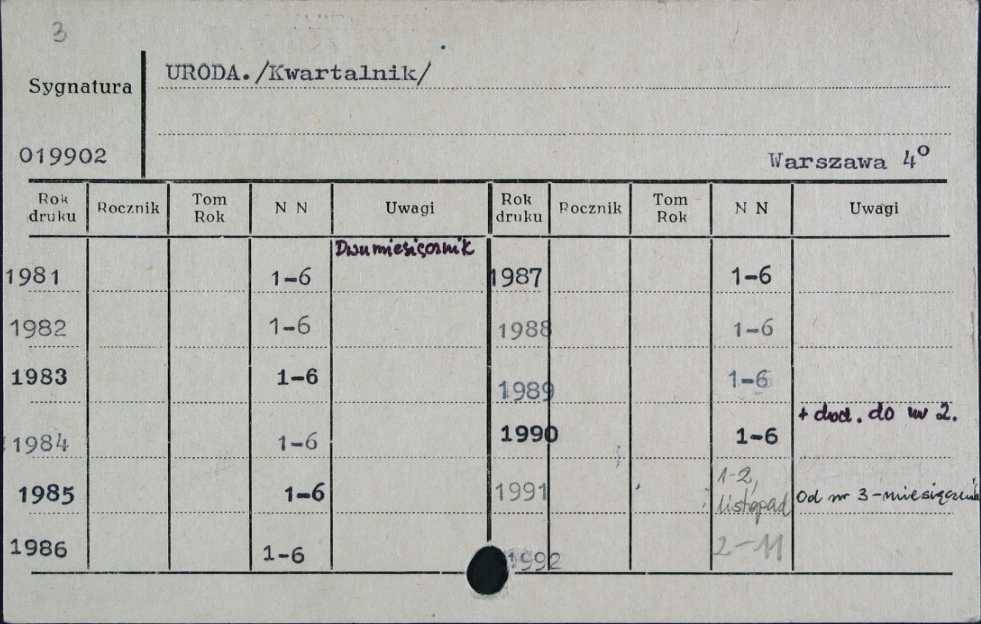 3
Sygnatura
URODA./Kwartalnik/
019902
Warszawa 4º
Rok druku Rocznik Tom Rok N N Uwagi Rok druku Rocznik Tom Rok N N Uwagi
Dwumiesięcznik
1981 1-6 1987 1-6
1982 1-6 1988 1-6
1983 1-6 1989 1-6
1984 1-6 1990 1-6 + dod. do nr 2.
1985 1-6 1991 1-2, listopad Od nr 3-miesięcznik
1986 1-6 1992 2-11